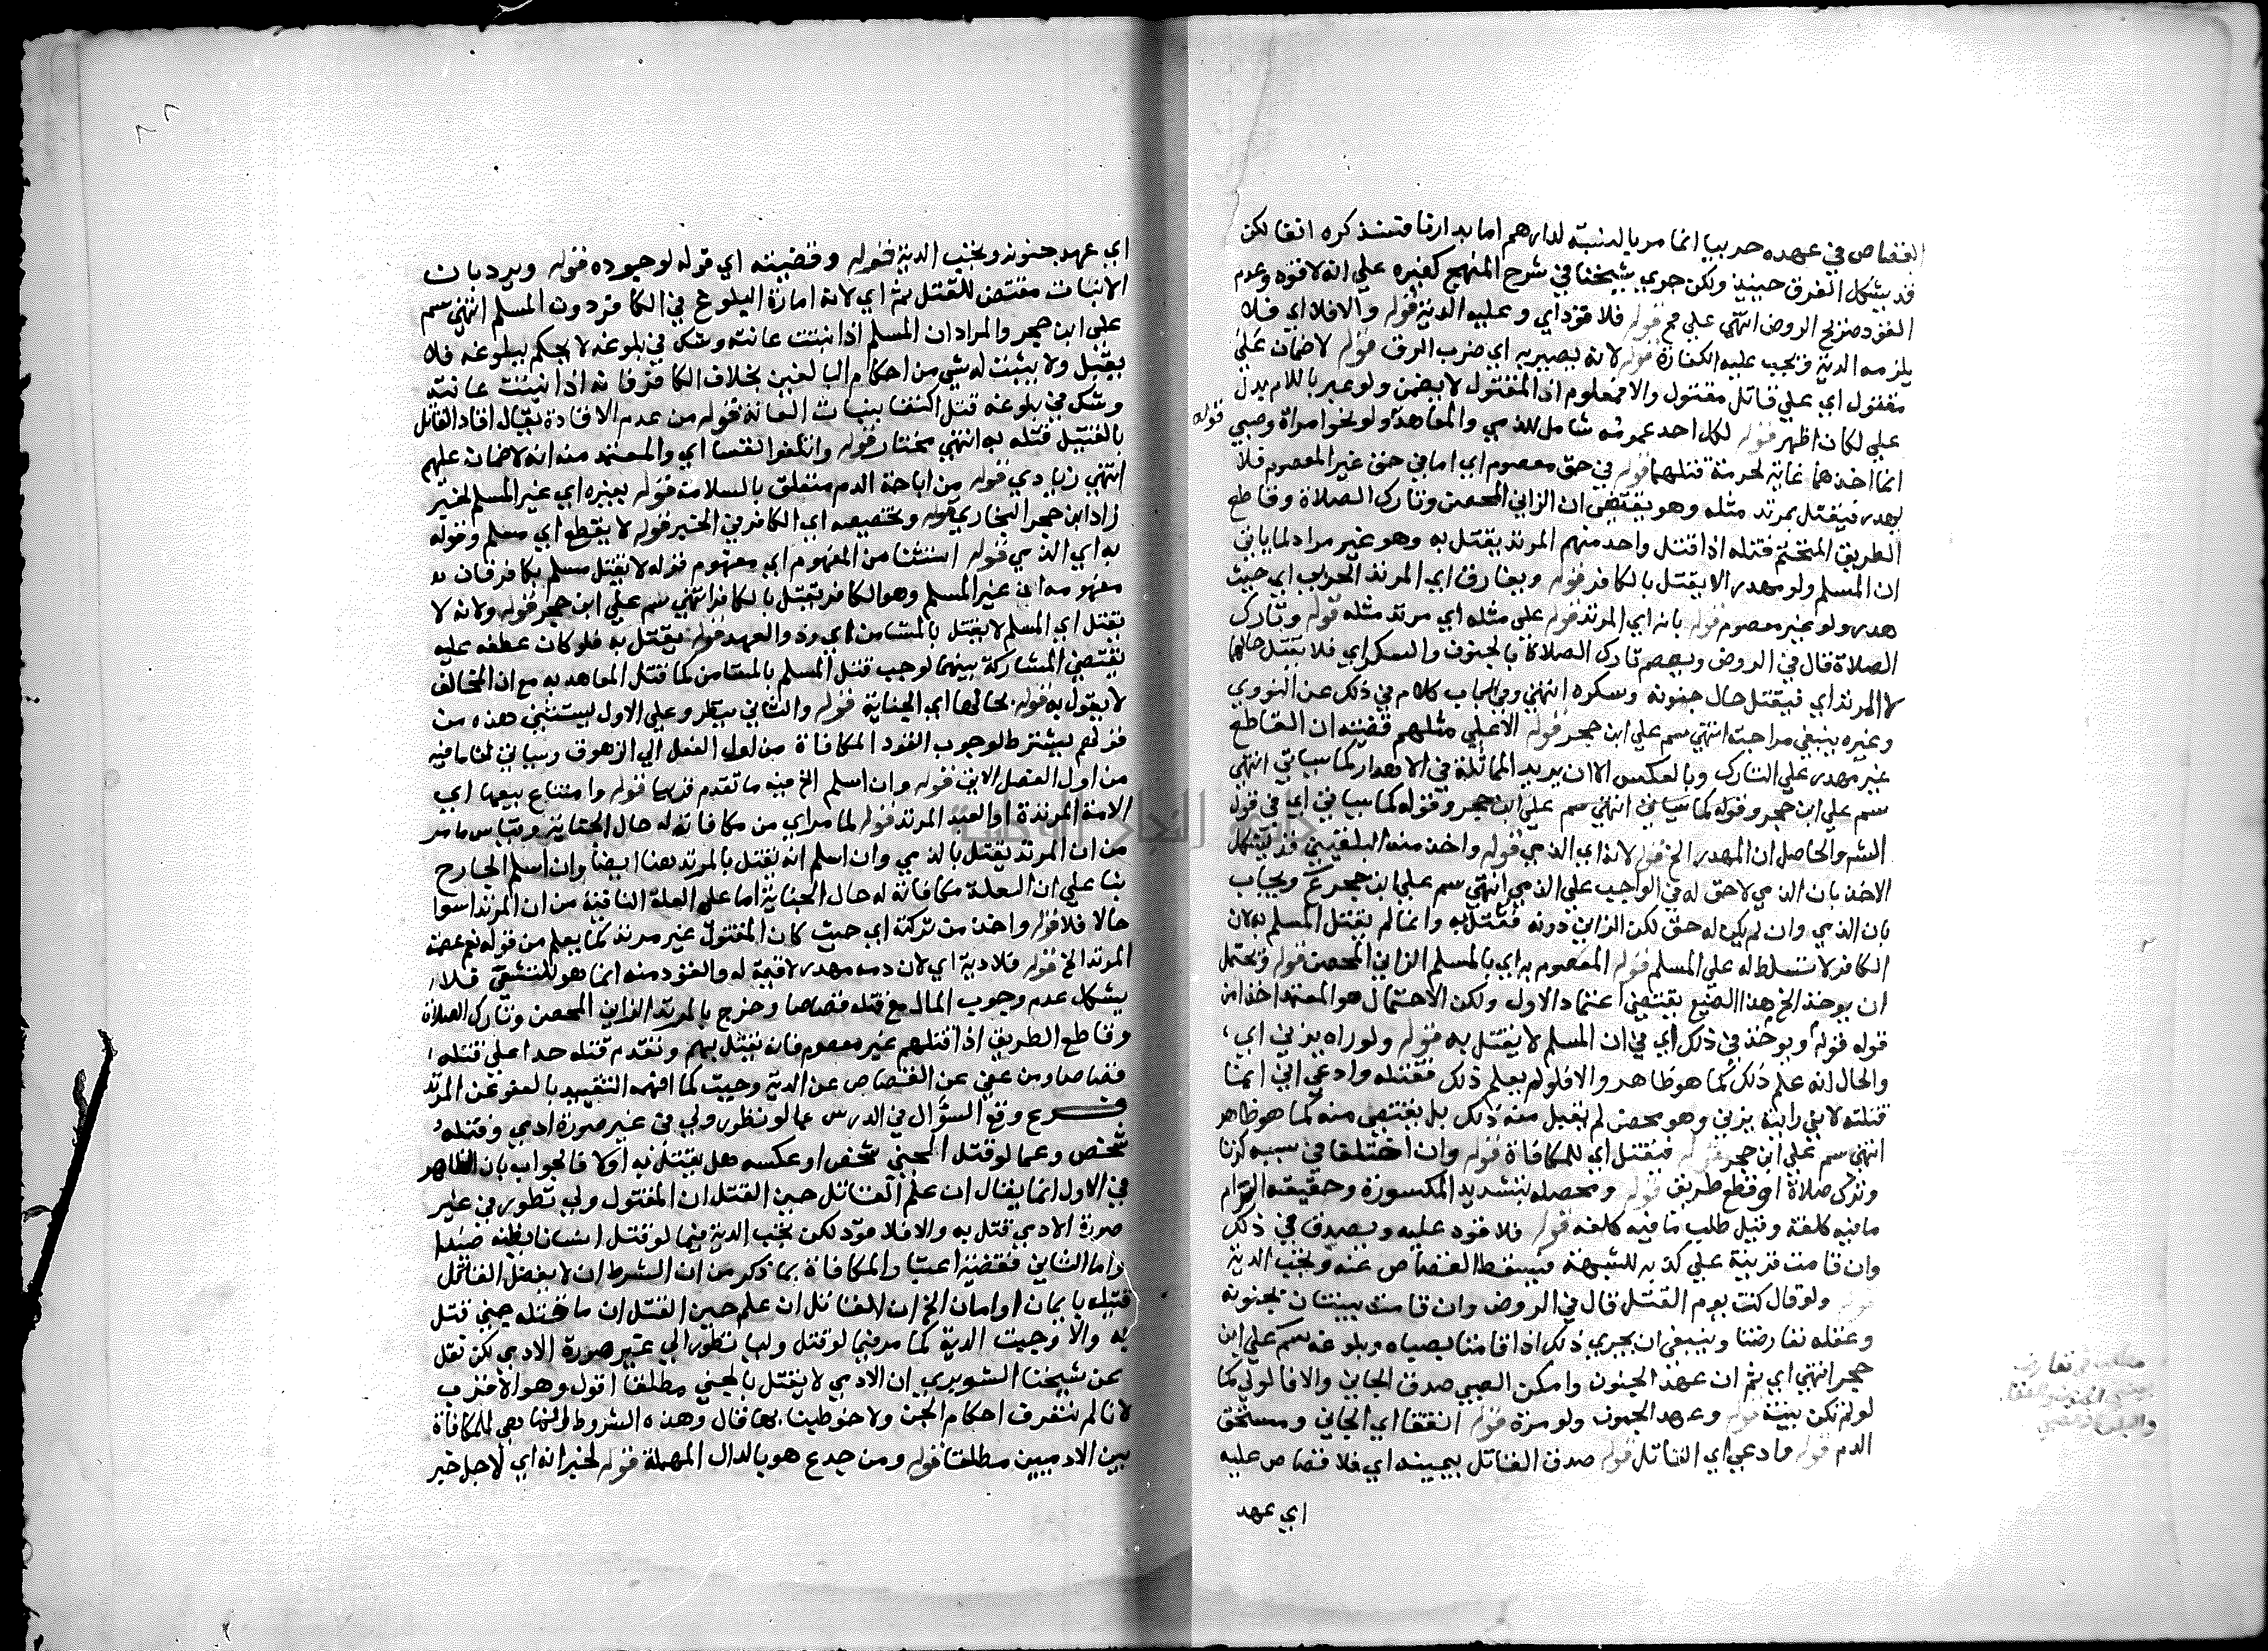 القصاص في عهده حربيا انما مر بالنسبة لدارهم اما بدارنا فتتذكره انفا لكن
قد يشكل الفرق حينئذ ولكن جري شيخنا في شرح المنهج كغيره علي انه لا قوه وعدم
القود صرح الروض انتهي علي حج قوله فلا قود اي وعليه الدية قوله والا فلا اي فلا
يلزمه الدية وتجب عليه الكفارة قوله لانه يصيره اي ضرب الرق قوله لا ضمان علي
مقتول اي علي قاتل مقتول والا فمعلوم اذ المقتول لا يضمن ولو عبر باللام بدل
علي لكان اظهر قوله لكل احد عمومه شامل للذمي والمعاهد ولو نحو امراة وصبي قوله
انما اخذها غاية لحرمة قتلهما قوله في حق معصوم اي اما في حق غير المعصوم فلا
يهدر فيقتل بمرتد مثله وهو يقتضي ان الزاني المحصن وتارك الصلاة وقاطع
الطريق المتحتم قتله اذا قتل واحد منهم المرتد يقتل به وهو غير مراد لما ياتي
ان المسلم ولو مهدر الا يقتل بالكافر قوله ويفارق اي المرتد الحربي اي حيث
هدر ولو غير معصوم قوله بانه اي المرتد قوله علي مثله اي مرتد مثله قوله وتارك
الصلاة قال في الروض ويعصم تارك الصلاة بالجنون والسكر اي فلا يقتل حالهما
لا المرتد اي فيقتل حال جنونه وسكره انتهي وفي الباب كلام في ذلك عن النووي
وغيره ينبغي مراجعته انتهي سم علي ابن حجر قوله الا علي مثلهم قضيته ان القاطع
غير مهدر علي التارك وبالعكس الا ان يريد المماثلة في الاهدار كما سياتي انتهي
سم علي ابن حجر وقوله كما سياتي انتهي سم علي ابن حجر وقوله كما سياتي اي في قوله
الشم والحاصل ان المهدر الخ قوله لانه اي الذمي قوله واخذ منه البلقيني قد يشكل
الاخذ بان الذمي لا حق له في الواجب علي الذمي انتهي سم علي ابن حجر ويجاب
بان الذمي وان لم يكن له حق لكن الزاني دونه فقتل به وانما لم يقتل المسلم به لان
الكافر لا تسلط له علي المسلم قوله المعصوم به اي بالمسلم الزاني المحصن قوله ويحتمل
ان يوخذ الخ هذا الصنيع يقتضي اعتماد الاول ولكن الاحتمال هو المعتمد اخذا من
قوله قوله ويوخذ في ذلك اي في ان المسلم لا يقتل به قوله ولو راه يزني اي
والحال انه علم ذلك كما هو ظاهر والا فلو لم يعلم ذلك فقتله وادعي اني انما
قتلته لاني رايته يزني وهو محصن لم يقبل منه ذلك بل يقتص منه كما هو ظاهر
انتهي سم علي ابن حجر قوله فيقتل اي للمكافاة قوله وان اختلفا في سببه كزنا
وترك صلاة او قطع طريق قوله ومحصله بتشديد المكسورة وحقيقته الزام
ما فيه كلفة وقيل طلب ما فيه كلفه قوله فلا قود عليه ويصدق في ذلك
وان قامت قرينة علي كذبه للشبهة فيسقط القصاص عنه وتجب الدية
قوله ولو قال كنت يوم القتل قال في الروض وان قامت بينتان بجنونه
وعقله تعارضتا وينبغي ان يجري ذلك اذا قامتا بصباه وبلوغه سم علي ابن
حجر انتهي اي ثم ان عهد الجنون وامكن الصبي صدق الجاني والا فالولي كما
لو لم تكن بينة قوله وعهد الجنون ولو مرة قوله اتفقا اي الجاني ومستحق
الدم قوله وادعي اي القاتل قوله صدق القاتل بيمينه اي فلا قصاص عليه
اي عهد
اي عهد جنونه وتجب الدية قوله وقضيته اي قوله لوجوده قوله ويرد بان
الانبات مقتض للقتل ثم اي لانه امارة البلوغ في الكافر دون المسلم انتهي سم
علي ابن حجر والمراد ان المسلم اذا نبتت عانته وشك في بلوغه لا يحكم ببلوغه فلا
يقتل ولا يثبت له شي من احكام البالغين بخلاف الكافر فانه اذا نبتت عانته
وشك في بلوغه قتل اكتفا بنبات العانة قوله من عدم الافادة يقال افاد القاتل
بالقتيل قتله به انتهي مختار قوله واتلفوا نفسا اي والمعتمد منه انه لا ضمان عليهم
انتهي زيادي قوله من اباحة الدم متعلق بالسلامة قوله بغيره اي غير المسلم لخبر
زاد ابن حجر البخاري قوله وتخصيصه اي الكافر في الخبر قوله لا يقطع اي مسلم وقوله
به اي الذمي قوله استثنا من المفهوم اي مفهوم قوله لا يقتل مسلم بكافر فان
مفهومه ان غير المسلم وهو الكافر يقتل بالكافر انتهي سم علي ابن حجر قوله ولانه لا
يقتل اي المسلم لا يقتل بالمستامن اي وذو العهد قوله يقتل به فلو كان عطفه عليه
يقتضي المشاركة بينهما لوجب قتل المسلم بالمستامن كما قتل المعاهد به مع ان المخالف
لا يقول به قوله بحالها اي الجناية قوله والثاني ينظر وعلي الاول يستثني هذه من
قولهم يشترط لوجوب القود المكافاة من اول الفعل الي الزهوق وسياتي لنا ما فيه
من اول الفصل الاتي قوله وان اسلم الخ فيه ما تقدم قريبا قوله وامتناع بيعها اي
الامة المرتدة او العبد المرتد قوله لما مر اي من مكافاته له حال الجناية وقياس ما مر
من ان المرتد يقتل بالذمي وان اسلم انه يقتل بالمرتد هنا ايضا وان اسلم الجارح
بنا علي ان العلة مكافاته له حال الجناية اما علي العلة الثانية من ان المرتد اسوا
حالا فلا قوله واخذ من تركته اي حيث كان المقتول غير مرتد كما يعلم من قوله نعم عصمة
المرتد الخ قوله فلا دية اي لان دمه مهدر لا قيمة له والقود منه انما هو للتشفي فلا
يشكل عدم وجوب المال مع قتله قصاصا وخرج بالمرتد الزاني المحصن وتارك الصلاة
وقاطع الطريق اذا قتلهم غير معصوم فانه يقتل بهم وتقدم قتله حدا علي قتله
قصاصا ومن عفي عن القصاص عن الدية وجبت كما افهمه التقييد بالعفو عن المرتد
فرع وقع السؤال في الدرس عما لو تطور ولي في غير صورة ادمي وقتله
شخص وعما لو قتل الجني شخص او عكسه هل يقتل به اولا فالجواب بان الظاهر
في الاول انما يقال ان علم القاتل حين القتل ان المقتول ولي تطور في غير
صورة الادمي قتل به والا فلا قود لكن تجب الدية فيما لو قتل انسانا يظنه صيدا
واما الثاني فقضية اعتبار المكافاة بما ذكر من ان الشرط ان لا يفضل القاتل
قتيله بايمان او امان الخ ان القاتل ان علم حين القتل ان ما قتله جني قتل
به والا وجبت الدية كما مر فيما لو قتل وليا تطور الي غير صورة الادمي لكن نقل
عن شيخنا الشوبري ان الادمي لا يقتل بالجني مطلقا اقول وهو الاقرب
لانا لم نتعرف احكام الجن ولا خوطبنا بها قال وهذه الشروط انما هي للمكافاة
بين الادميين مطلقا قوله ومن جدع هو بالدال المهملة قوله لخبر انه اي لاجل خبر